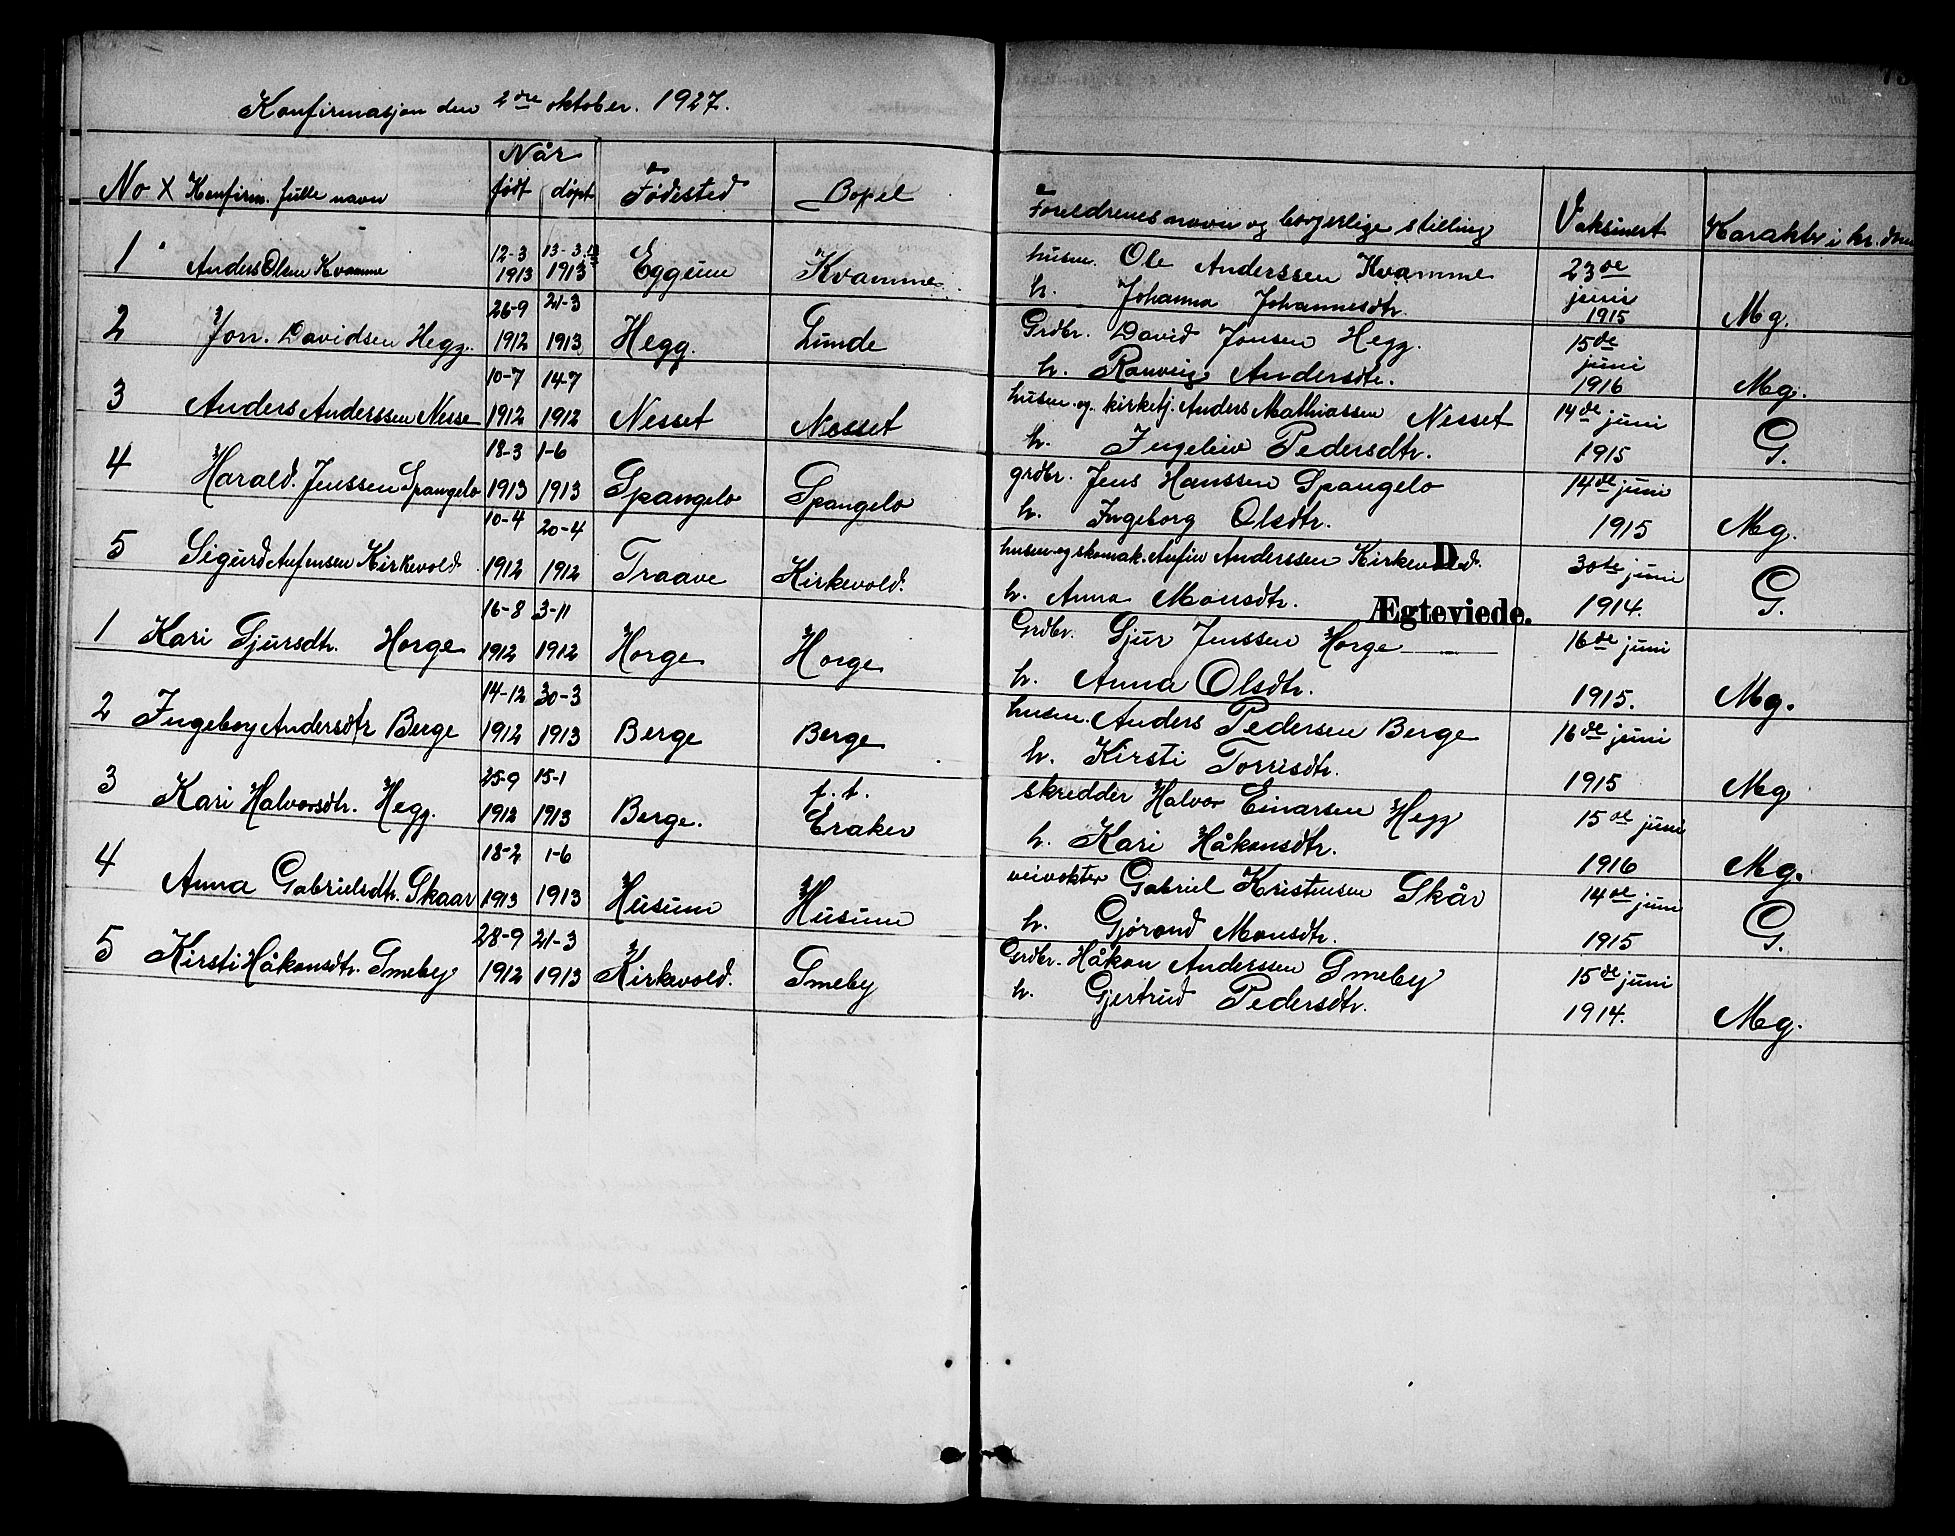 Konfirmasjon den 2dre oktober. 1927.
No X Konfirm. fulle navn Når født døpt Fødested Bopel Foreldrenes navn og borgerlige stilling Vaksinert Karakter i kr.dom
1 Anders Olsen Kvamme 12-3 1913 13-3 1913 Eggum Kvamme husm. Ole Anderssen Kvamme 23de juni 1915 Mg.
h. Johanna Johannesdtr.
2 Jon. Davidsen Hegg. 26-9 1912 21-3 1913 Hegg. Lunde Grdbr. David Jonsen Hegg. 15de juni 1916 Mg.
h. Ranveig Andersdtr.
3 Anders Anderssen Nesse 10-7 1912 14-7 1912 Nesset Nesset husm. og kirketj. Anders Mathiassen Nesset 14de juni 1915 G.
h. Ingeleiv Pedersdtr.
4 Harald. Jenssen Spangelo 18-3 1913 1-6 1913 Spangelo Spangelo grdbr. Jens Hanssen Spangelo 14de juni 1915 Mg.
h. Ingeborg Olsdtr.
5 Sigurd Anfinsen Kirkevold 10-4 1912 20-4 1912 Traave Kirkevold. husm. og skomak. Anfin Anderssen Kirkevold. 30te juni 1914. G.
D.
h. Anna Monsdtr.
Ægteviede.
1 Kari Sjursdtr. Horge 16-8 1912 3-11 1912 Horge Horge Grdbr. Sjur Jenssen Horge 16de juni 1915. Mg.
h. Anna Olsdtr.
2 Ingeborg Andersdtr Berge 14-12 1912 30-3 1913 Berge Berge husm. Anders Pedersen Berge 16de juni 1915 Mg
h. Kirsti Torrisdtr.
3 Kari Halvorsdtr. Hegg. 25-9 1912 15-1 1913 Berge. t.t. Eraker skredder Halvor Einarsen Hegg 15de juni 1916 Mg.
h. Kari Håkonsdtr.
4 Anna Gabrielsdtr. Skaar 18-2 1913 1-6 1913 Husum Husum veivokter Gabriel Kristensen Skår 14de juni 1915 G.
h. Gjørond Monsdtr.
5 Kirsti Håkonsdtr. Smeby 28-9 1912 21-3 1913 Kirkevold. Smeby Grdbr. Håkon Anderssen Smeby 15de juni 1914. Mg.
h. Gjertrud Pedersdtr.